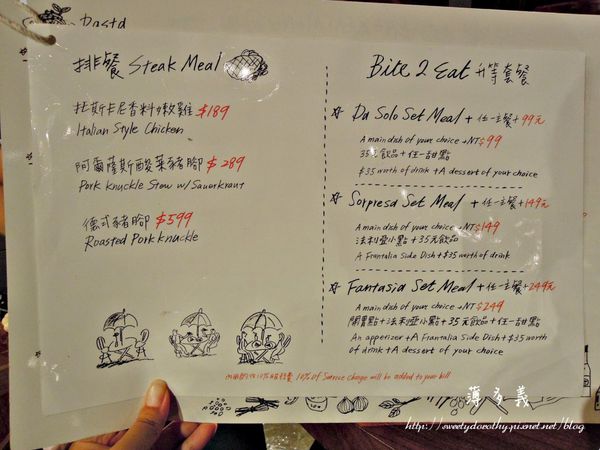 Pasta
排餐 Steak Meal
托斯卡尼香料嫩雞 $189
Italian Style Chicken
阿爾薩斯酸菜豬腳 $289
Pork Knuckle Stew w/ Sauerkraut
德式豬腳 $599
Roasted Pork Knuckle
Bite 2 Eat 升等套餐
☆ Da Solo Set Meal + 任一主餐+99元
A main dish of your choice +NT$99
35元飲品+任一甜點
$35 worth of drink +A dessert of your choice
☆ Sorpresa Set Meal + 任一主餐+149元
A main dish of your choice +NT$149
法利亞小點+35元飲品
A Frantalia Side Dish+$35 worth of drink
☆ Fantasia Set Meal + 任一主餐+249元
A main dish of your choice +NT$249
開胃點+法利亞小點+35元飲品+任一甜點
An appetizer +A Frantalia Side Dish+$35 worth
of drink +A dessert of your choice
10% of Service Charge will be added to your bill
薄多義
http://sweetydorothy.pixnet.net/blog